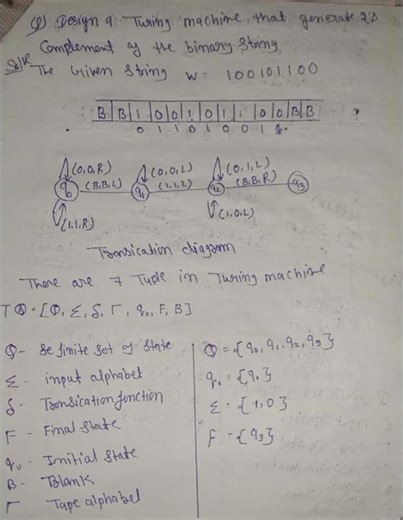 Q) Design a Turing machine, that generate 2's
Complement of the binary string.
Soln
The Given string w = 100101100
B B 1 0 0 1 0 1 1 0 0 B B
0 1 1 0 1 0 0 1
(0,0,R) (0,0,L) (0,1,L)
q0 (B,B,L) q1 (1,1,L) q2 (B,B,R) q3
(1,1,R) (1,0,L)
Transication diagram
There are 7 Tuple in Turing machine
[Q, Σ, δ, Γ, q0, F, B]
Q- Se finite set of state
Σ - input alphabet
δ - Transication function
F - Final state
q0 - Imitial state
B - Blank
Γ Tape alphabel
Q = {q0, q1, q2, q3}
q0 = {q0}
Σ = {1,0}
F = {q3}